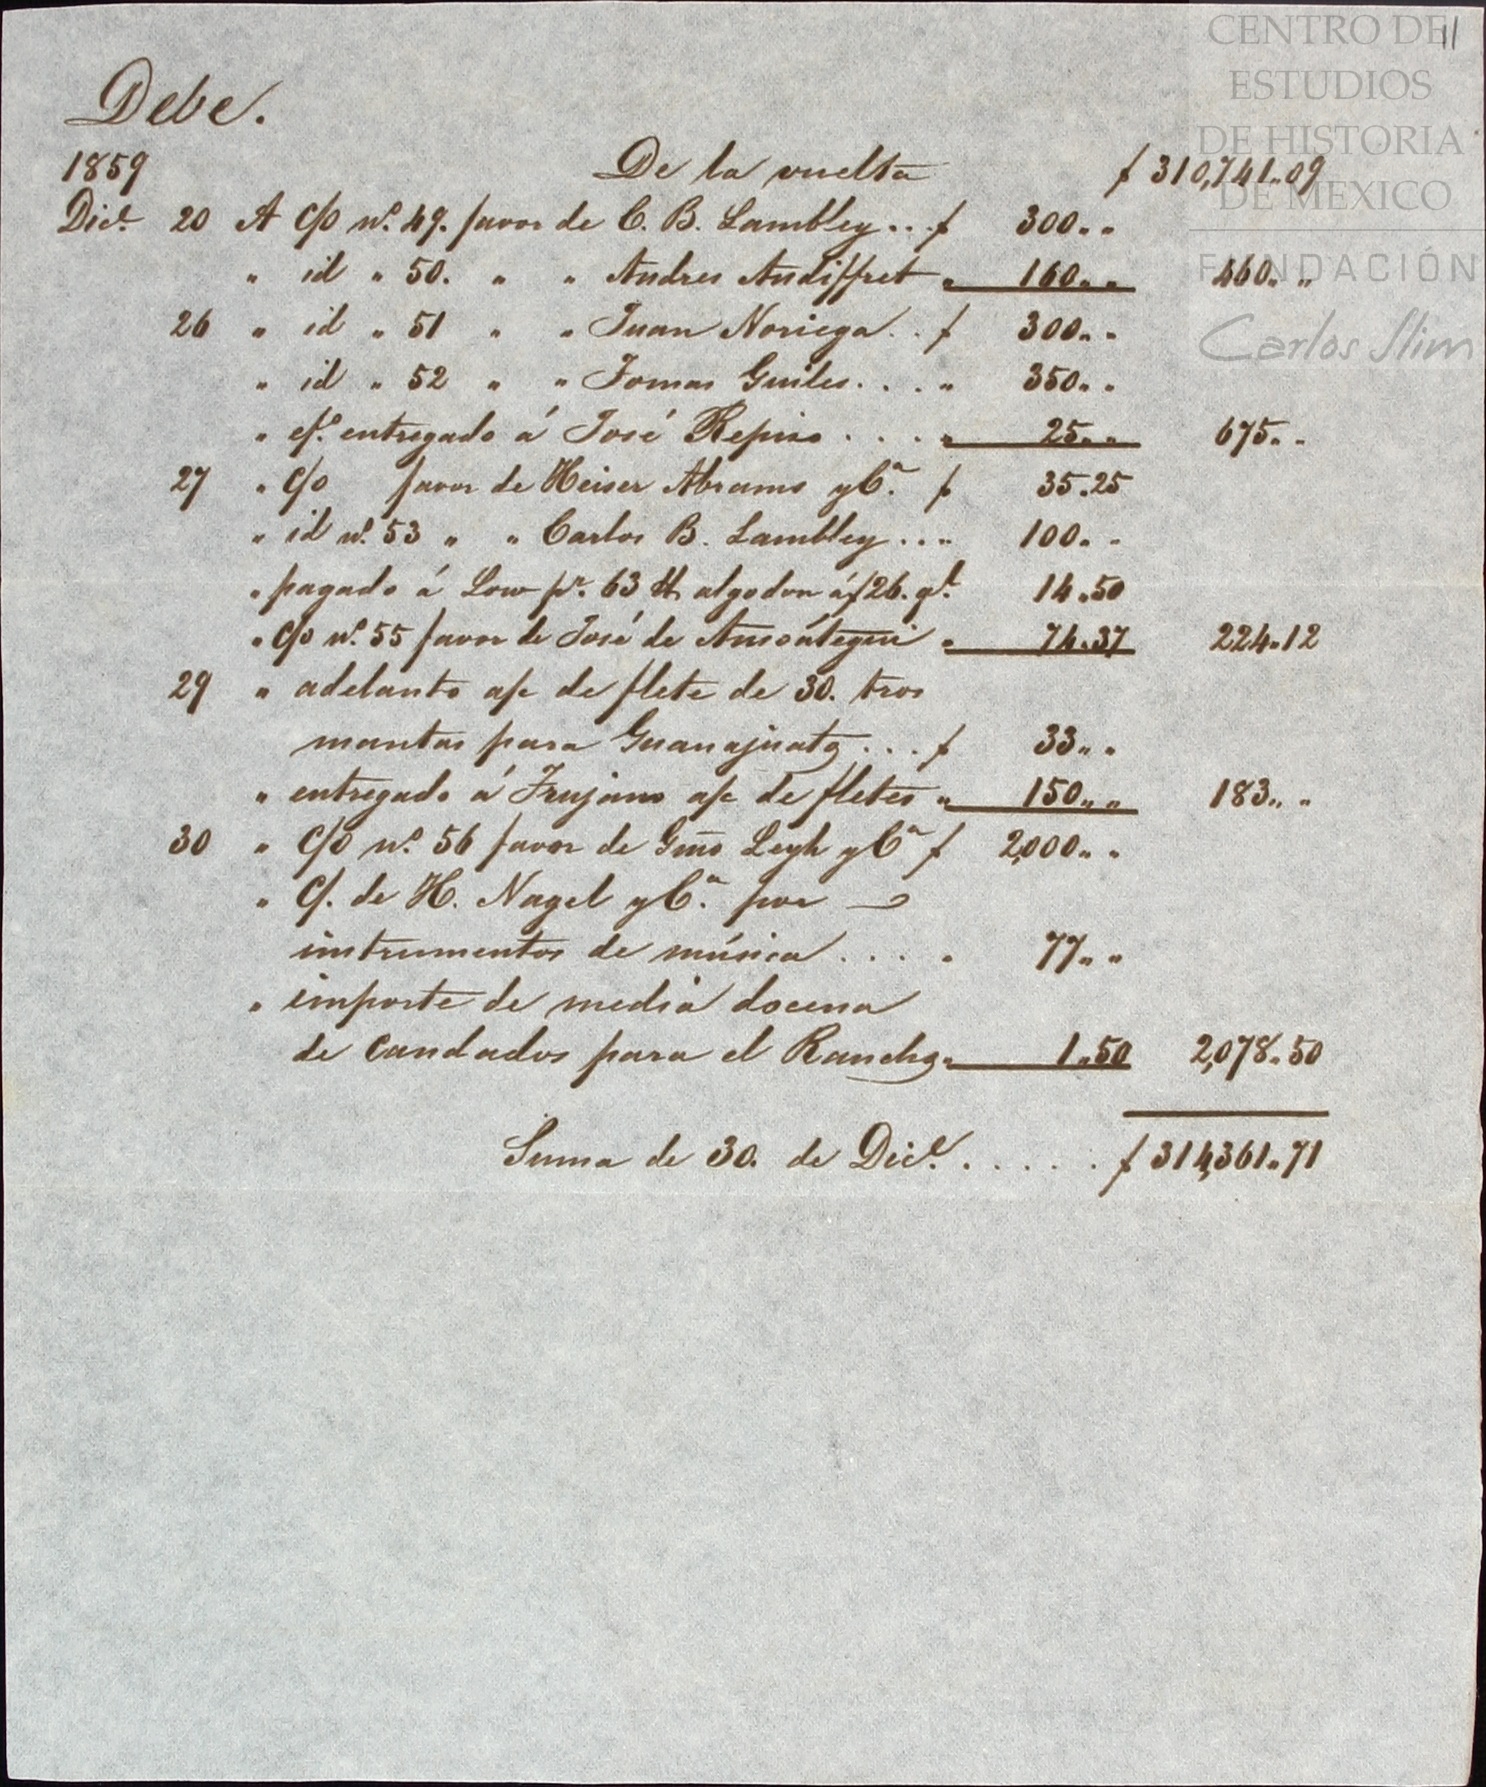 CENTRO DE
ESTUDIOS
DE HISTORIA
DE MEXICO
FUNDACIÓN
Carlos Slim
11
Debe.
1859 De la vuelta $ 310,741.09
Dice. 20 A C/O nº. 49. favor de C. B. Lambley . . . $ 300 " "
" id " 50. " " Andres Audiffret " 160 " " 460 " "
26 " id " 51 " " Juan Noriega . . $ 300 " "
" id " 52 " " Tomas Guiles . . . . " 350 " "
" efº. entregado á José Repiso . . . . " 25 " " 675 " "
27 " C/O favor de Heiser Abrams y Cª. $ 35.25
" id nº. 53 " " Carlos B. Lambley . . . " 100 " "
" pagado á Low pr. 63 lb algodon á $26. ql. 14.50
" C/O nº. 55 favor de José de Ansoátegui " 74.37 224.12
29 " adelanto a/c de flete de 30. tros
mantas para Guanajuato . . . $ 33 " "
" entregado á Trujano a/c de fletes " 150 " " 183 " "
30 " C/O nº. 56 favor de Gmo Legh y Cª $ 2,000 " "
" C/. de H. Nagel y Cª. por
instrumentos de música . . . . " 77 " "
" importe de media docena
de candados para el Rancho " 1.50 2,078.50
Suma de 30. de Dice. . . . . . $ 314,361.71